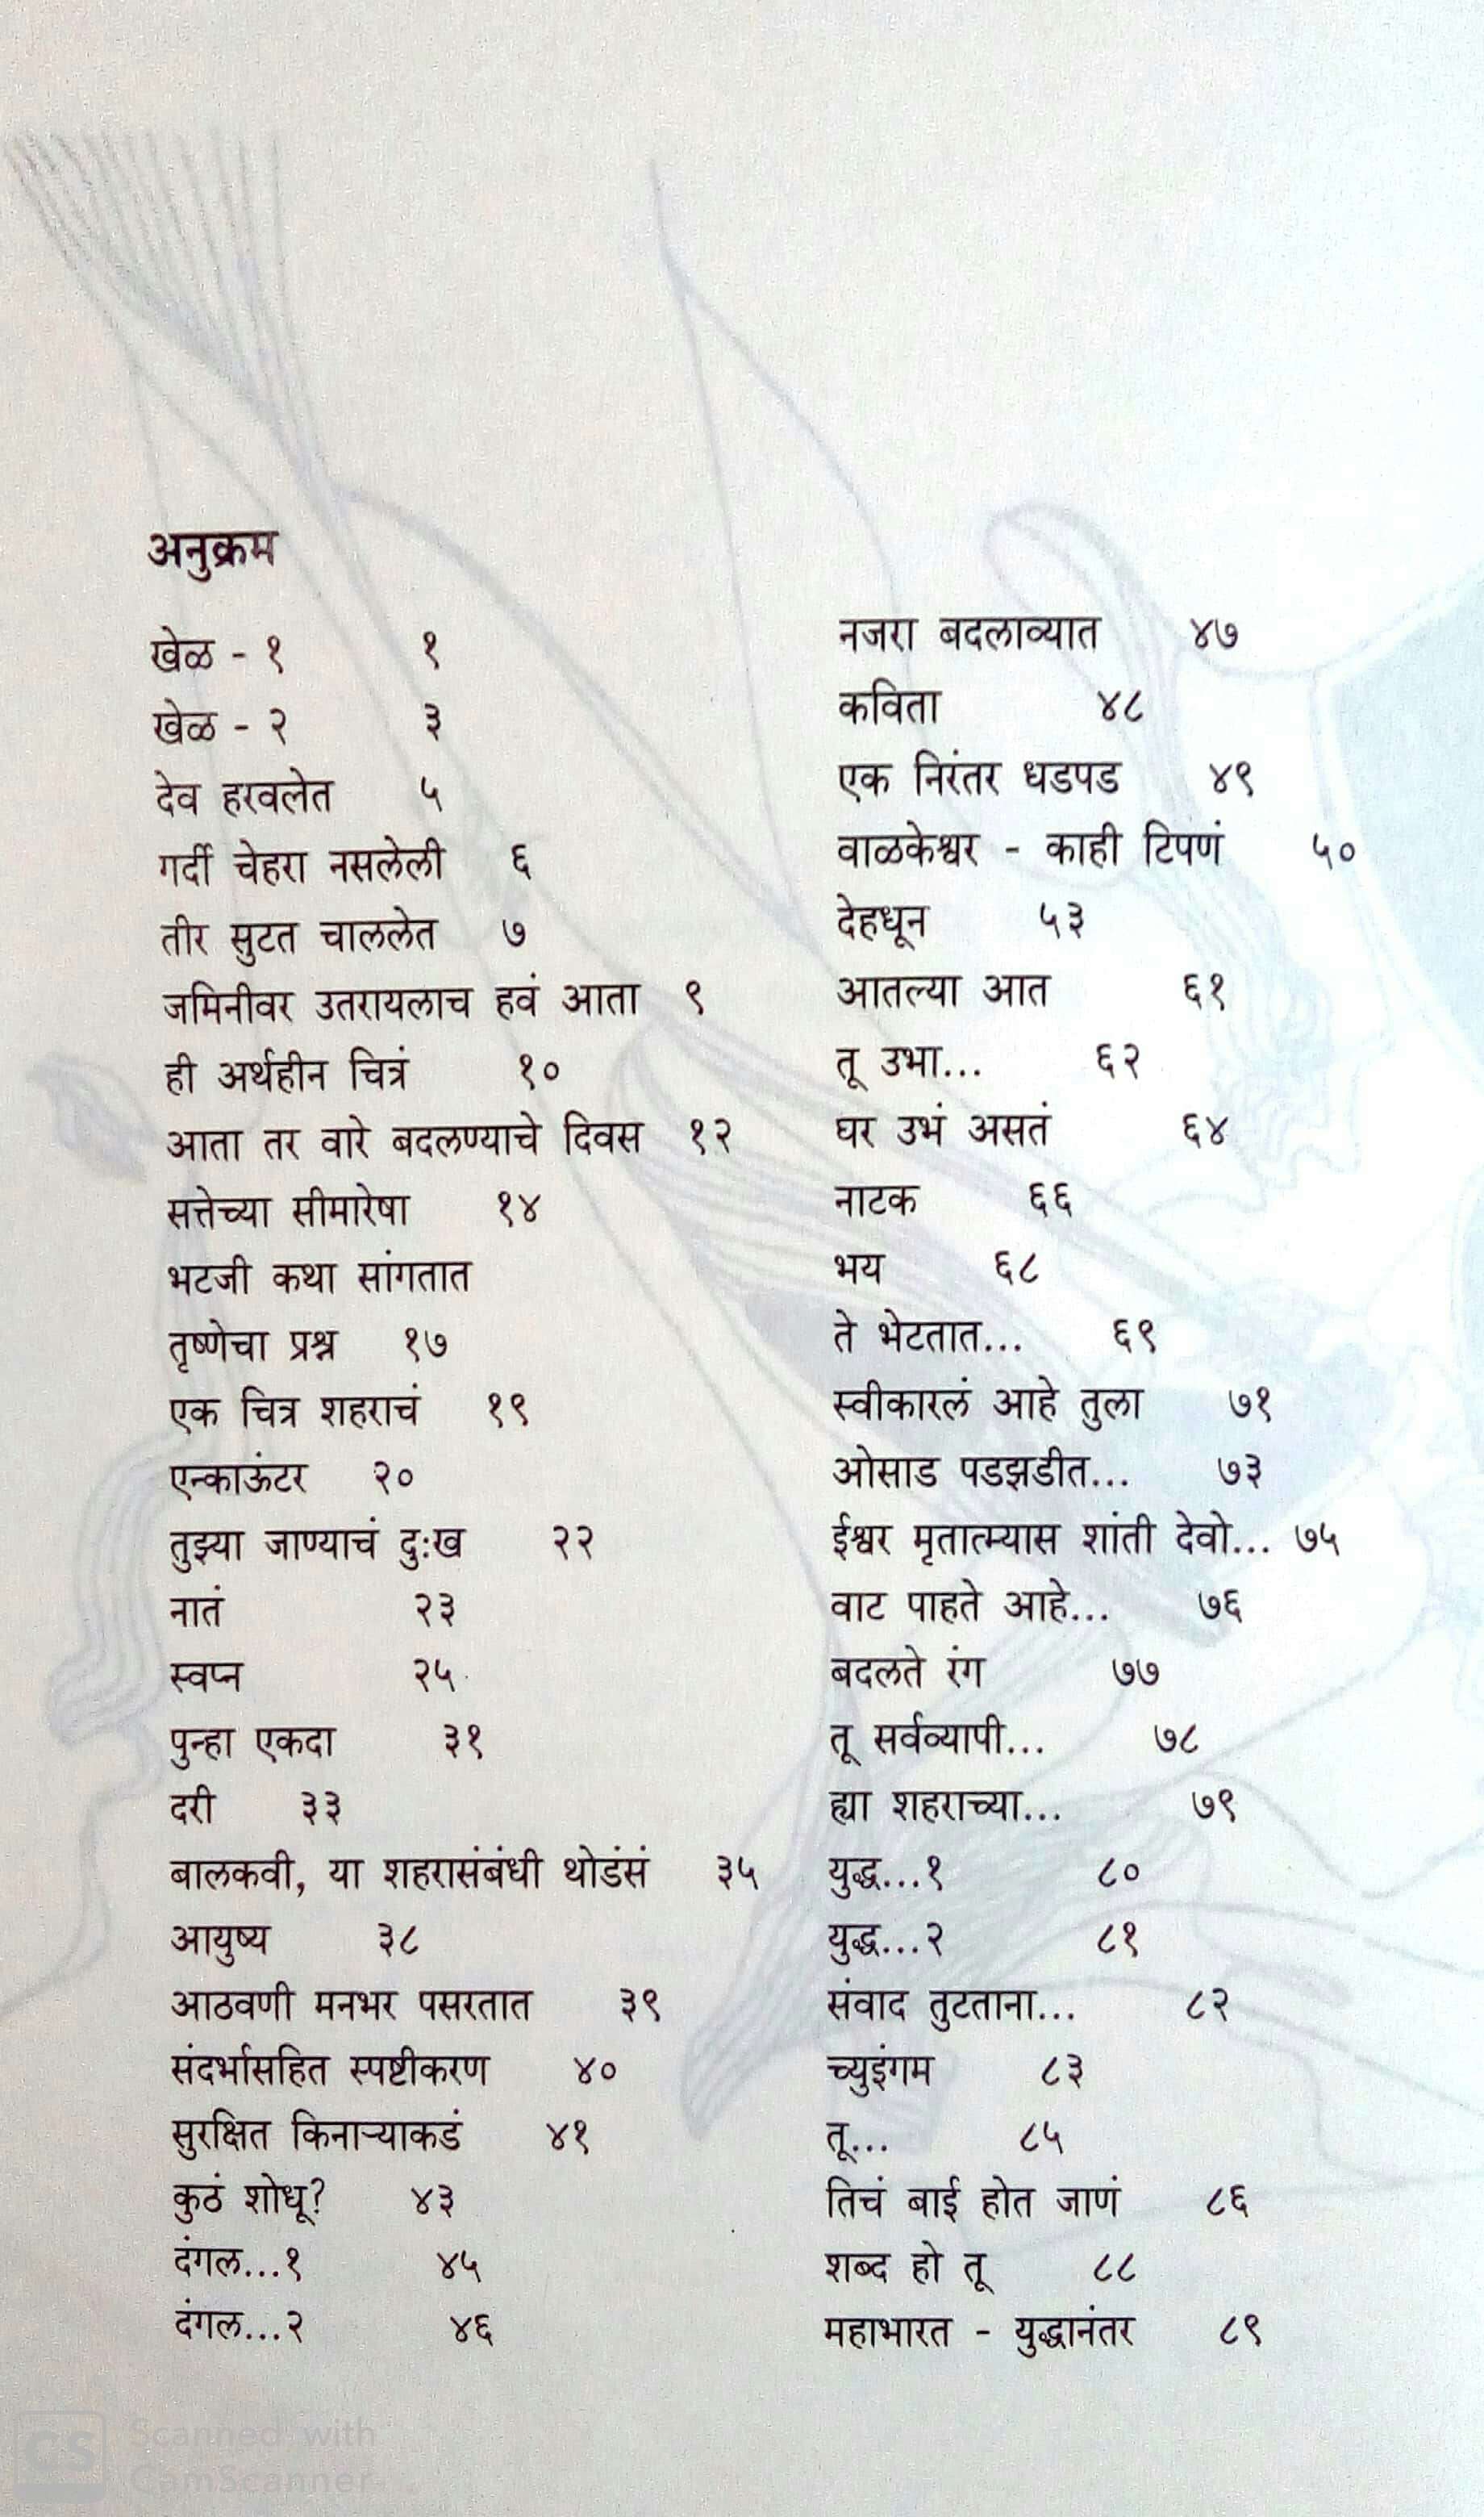 अनुक्रम
खेळ - १ १
खेळ - २ ३
देव हरवलेत ५
गर्दी चेहरा नसलेली ६
तीर सुटत चाललेत ७
जमिनीवर उतरायलाच हवं आता ९
ही अर्थहीन चित्रं १०
आता तर वारे बदलण्याचे दिवस १२
सत्तेच्या सीमारेषा १४
भटजी कथा सांगतात
तृष्णेचा प्रश्न १७
एक चित्र शहराचं १९
एन्काऊंटर २०
तुझ्या जाण्याचं दुःख २२
नातं २३
स्वप्न २५
पुन्हा एकदा ३१
दरी ३३
बालकवी, या शहरासंबंधी थोडंसं ३५
आयुष्य ३८
आठवणी मनभर पसरतात ३९
संदर्भासहित स्पष्टीकरण ४०
सुरक्षित किनाऱ्याकडं ४१
कुठं शोधू? ४३
दंगल...१ ४५
दंगल...२ ४६
नजरा बदलाव्यात ४७
कविता ४८
एक निरंतर धडपड ४९
वाळकेश्वर - काही टिपणं ५०
देहधून ५३
आतल्या आत ६१
तू उभा... ६२
घर उभं असतं ६४
नाटक ६६
भय ६८
ते भेटतात... ६९
स्वीकारलं आहे तुला ७१
ओसाड पडझडीत... ७३
ईश्वर मृतात्म्यास शांती देवो... ७५
वाट पाहते आहे... ७६
बदलते रंग ७७
तू सर्वव्यापी... ७८
ह्या शहराच्या... ७९
युद्ध...१ ८०
युद्ध...२ ८१
संवाद तुटताना... ८२
च्युइंगम ८३
तू... ८५
तिचं बाई होत जाणं ८६
शब्द हो तू ८८
महाभारत - युद्धानंतर ८९
CS Scanned with
CamScanner